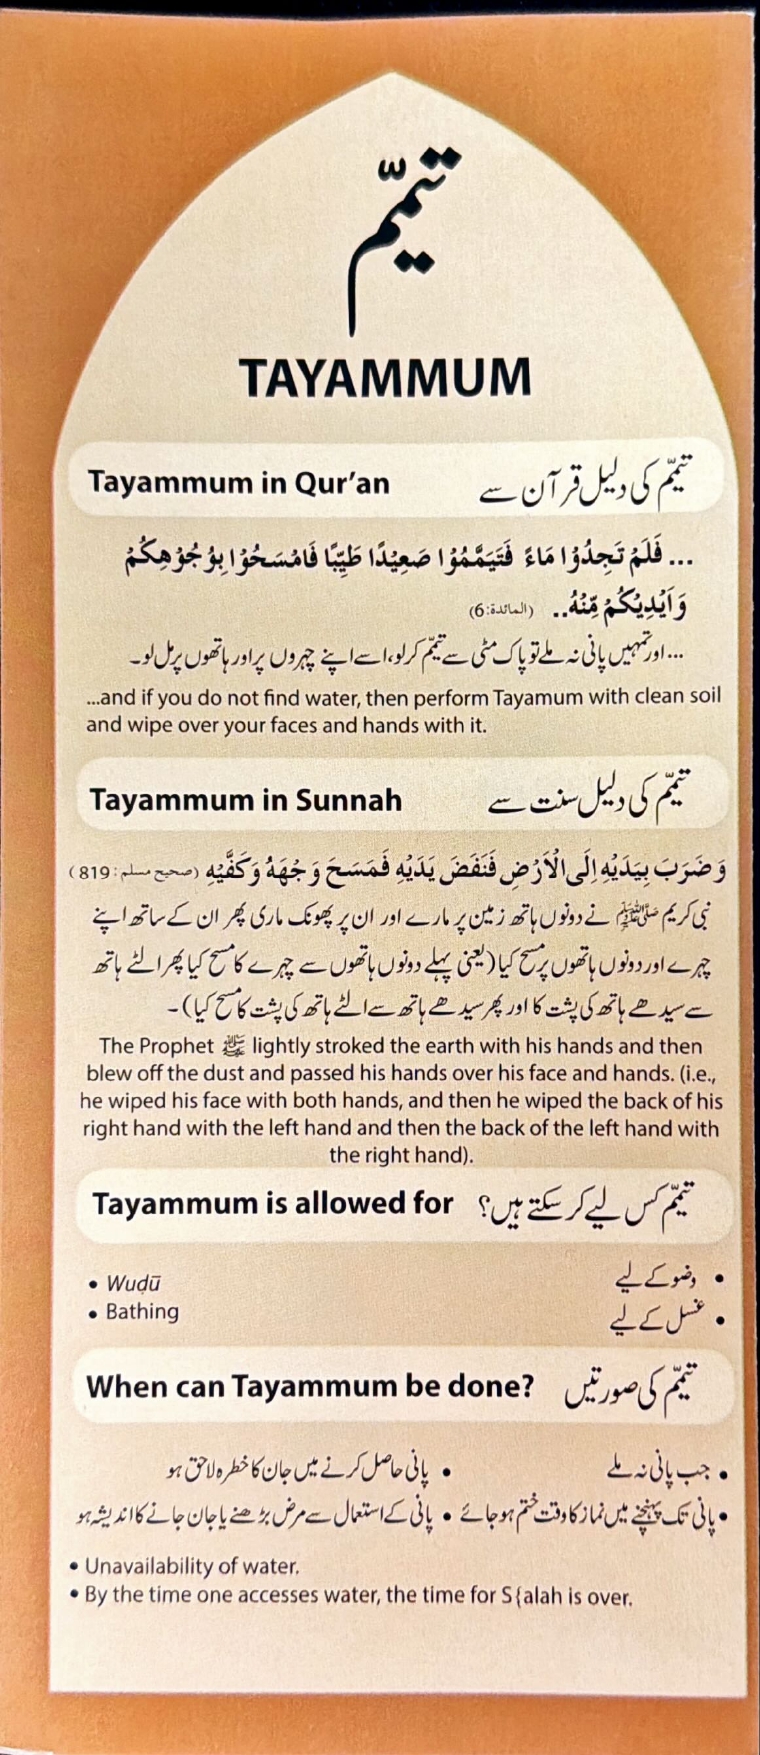 تیمّم
TAYAMMUM
Tayammum in Qur'an تیمّم کی دلیل قرآن سے
... فَلَمْ تَجِدُوْا مَآءً فَتَيَمَّمُوْا صَعِيْدًا طَيِّبًا فَامْسَحُوْا بِوُجُوْهِكُمْ
وَاَيْدِيْكُمْ مِّنْهُ.. (المائدة:6)
... اور تمہیں پانی نہ ملے تو پاک مٹی سے تیمّم کرلو، اسے اپنے چہروں پر اور ہاتھوں پر مل لو۔
...and if you do not find water, then perform Tayamum with clean soil
and wipe over your faces and hands with it.
Tayammum in Sunnah تیمّم کی دلیل سنت سے
وَضَرَبَ بِيَدَيْهِ اِلَى الْاَرْضِ فَنَفَضَ يَدَيْهِ فَمَسَحَ وَجْهَهُ وَكَفَّيْهِ (صحیح مسلم: 819)
نبی کریم ﷺ نے دونوں ہاتھ زمین پر مارے اور ان پر پھونک ماری پھر ان کے ساتھ اپنے
چہرے اور دونوں ہاتھوں پر مسح کیا (یعنی پہلے دونوں ہاتھوں سے چہرے کا مسح کیا پھر الٹے ہاتھ
سے سیدھے ہاتھ کی پشت کا اور پھر سیدھے ہاتھ سے الٹے ہاتھ کی پشت کا مسح کیا)۔
The Prophet ﷺ lightly stroked the earth with his hands and then
blew off the dust and passed his hands over his face and hands. (i.e.,
he wiped his face with both hands, and then he wiped the back of his
right hand with the left hand and then the back of the left hand with
the right hand).
Tayammum is allowed for تیمّم کس لیے کر سکتے ہیں؟
• Wuḍū • وضو کے لیے
• Bathing • غسل کے لیے
When can Tayammum be done? تیمّم کی صورتیں
• جب پانی نہ ملے • پانی حاصل کرنے میں جان کا خطرہ لاحق ہو
• پانی تک پہنچنے میں نماز کا وقت ختم ہو جائے • پانی کے استعمال سے مرض بڑھنے یا جان جانے کا اندیشہ ہو
• Unavailability of water.
• By the time one accesses water, the time for S{alah is over.